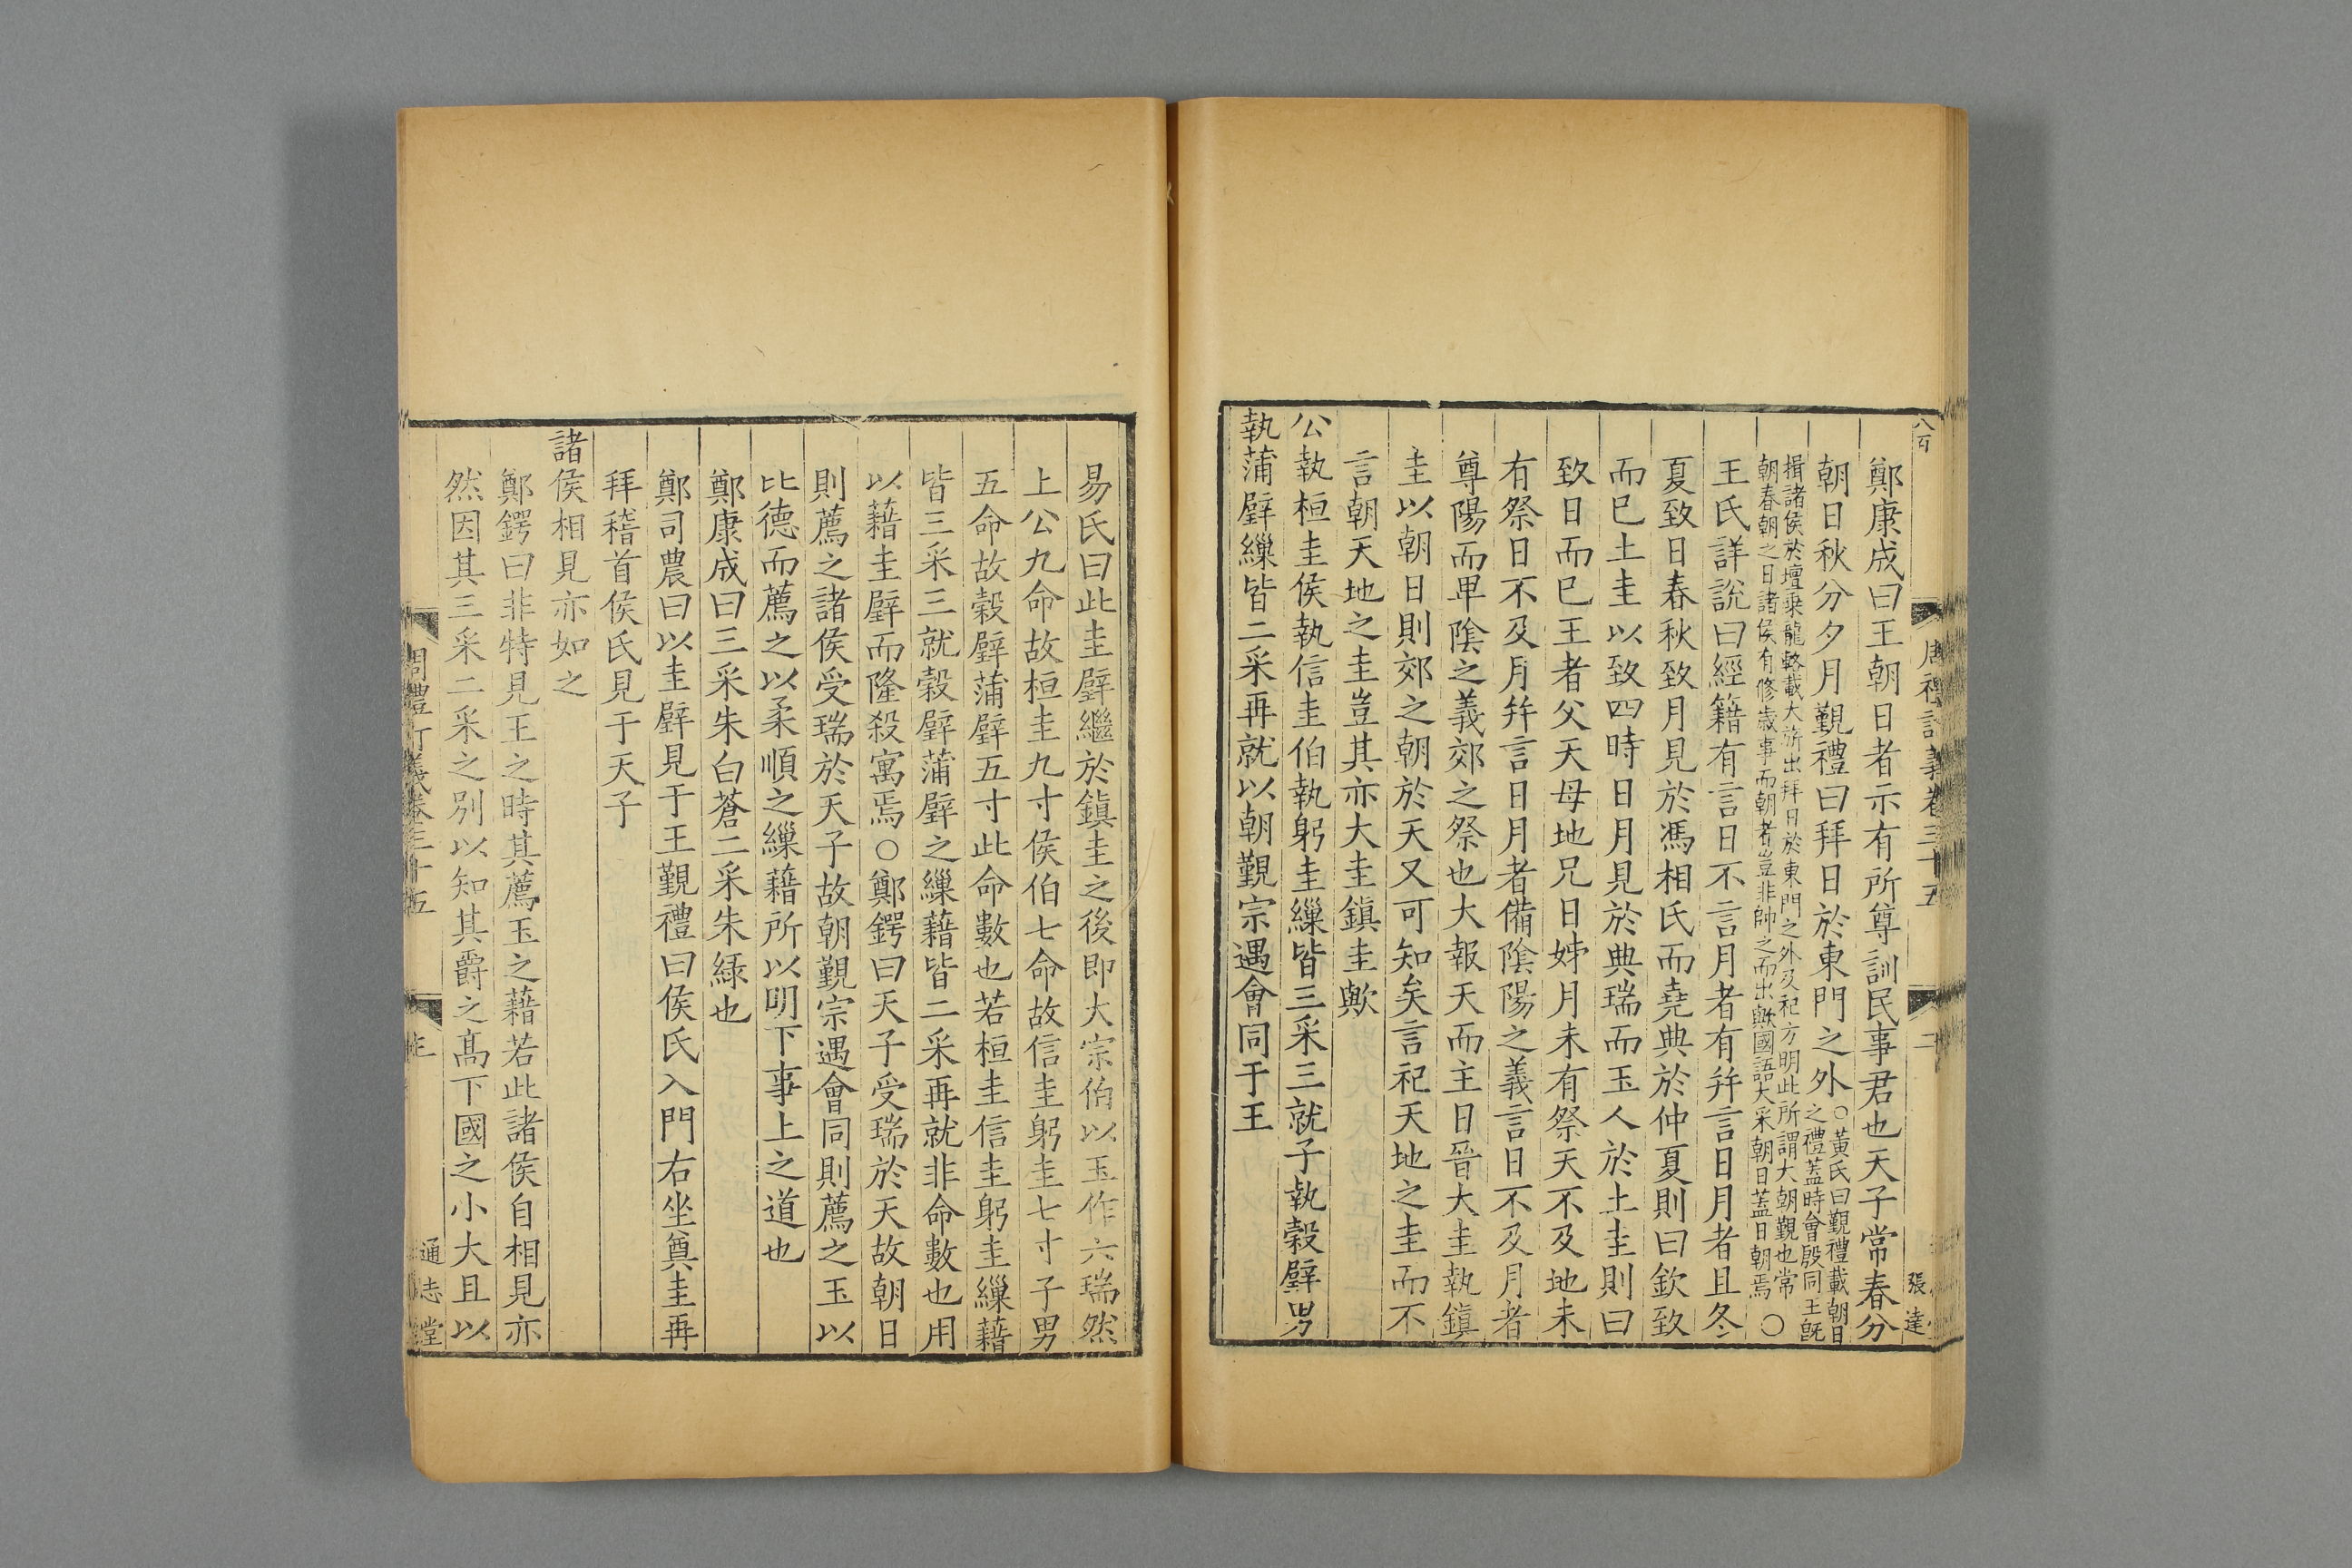 鄭康成曰王朝日者示有所尊訓民事君也天子常春分
朝日秋分夕月覲禮曰拜日於東門之外○黃氏曰覲禮載朝日
之禮蓋時會殷同王旣
揖諸侯於壇乗龍輅載大旂出拜日於東門之外及祀方明此所謂大朝覲也常
朝春朝之日諸侯有修歲事而朝者豈非帥之而出歟國語大采朝日蓋日朝焉○
王氏詳說曰經籍有言日不言月者有并言日月者且冬
夏致日春秋致月見於馮相氏而堯典於仲夏則曰欽致
而已土圭以致四時日月見於典瑞而玉人於土圭則曰
致日而已王者父天母地兄日姊月未有祭天不及地未
有祭日不及月并言日月者備隂陽之義言日不及月者
尊陽而卑隂之義郊之祭也大報天而主日晉大圭執鎮
圭以朝日則郊之朝於天又可知矣言祀天地之圭而不
言朝天地之圭豈其亦大圭鎮圭歟
公執桓圭侯執信圭伯執躬圭繅皆三采三就子執穀璧男
執蒲璧繅皆二采再就以朝覲宗遇會同于王
周禮訂義卷三十五
二
張達
易氏曰此圭璧繼於鎮圭之後即大宗伯以玉作六瑞然
上公九命故桓圭九寸侯伯七命故信圭躬圭七寸子男
五命故穀璧蒲璧五寸此命數也若桓圭信圭躬圭繅藉
皆三采三就穀璧蒲璧之繅藉皆二采再就非命數也用
以藉圭璧而隆殺寓焉○鄭鍔曰天子受瑞於天故朝日
則薦之諸侯受瑞於天子故朝覲宗遇會同則薦之玉以
比德而薦之以柔順之繅藉所以明下事上之道也
鄭康成曰三采朱白蒼二采朱綠也
鄭司農曰以圭璧見于王覲禮曰侯氏入門右坐奠圭再
拜稽首侯氏見于天子
諸侯相見亦如之
鄭鍔曰非特見王之時其薦玉之藉若此諸侯自相見亦
然因其三采二采之別以知其爵之髙下國之小大且以
周禮訂義卷三十五
三
通志堂